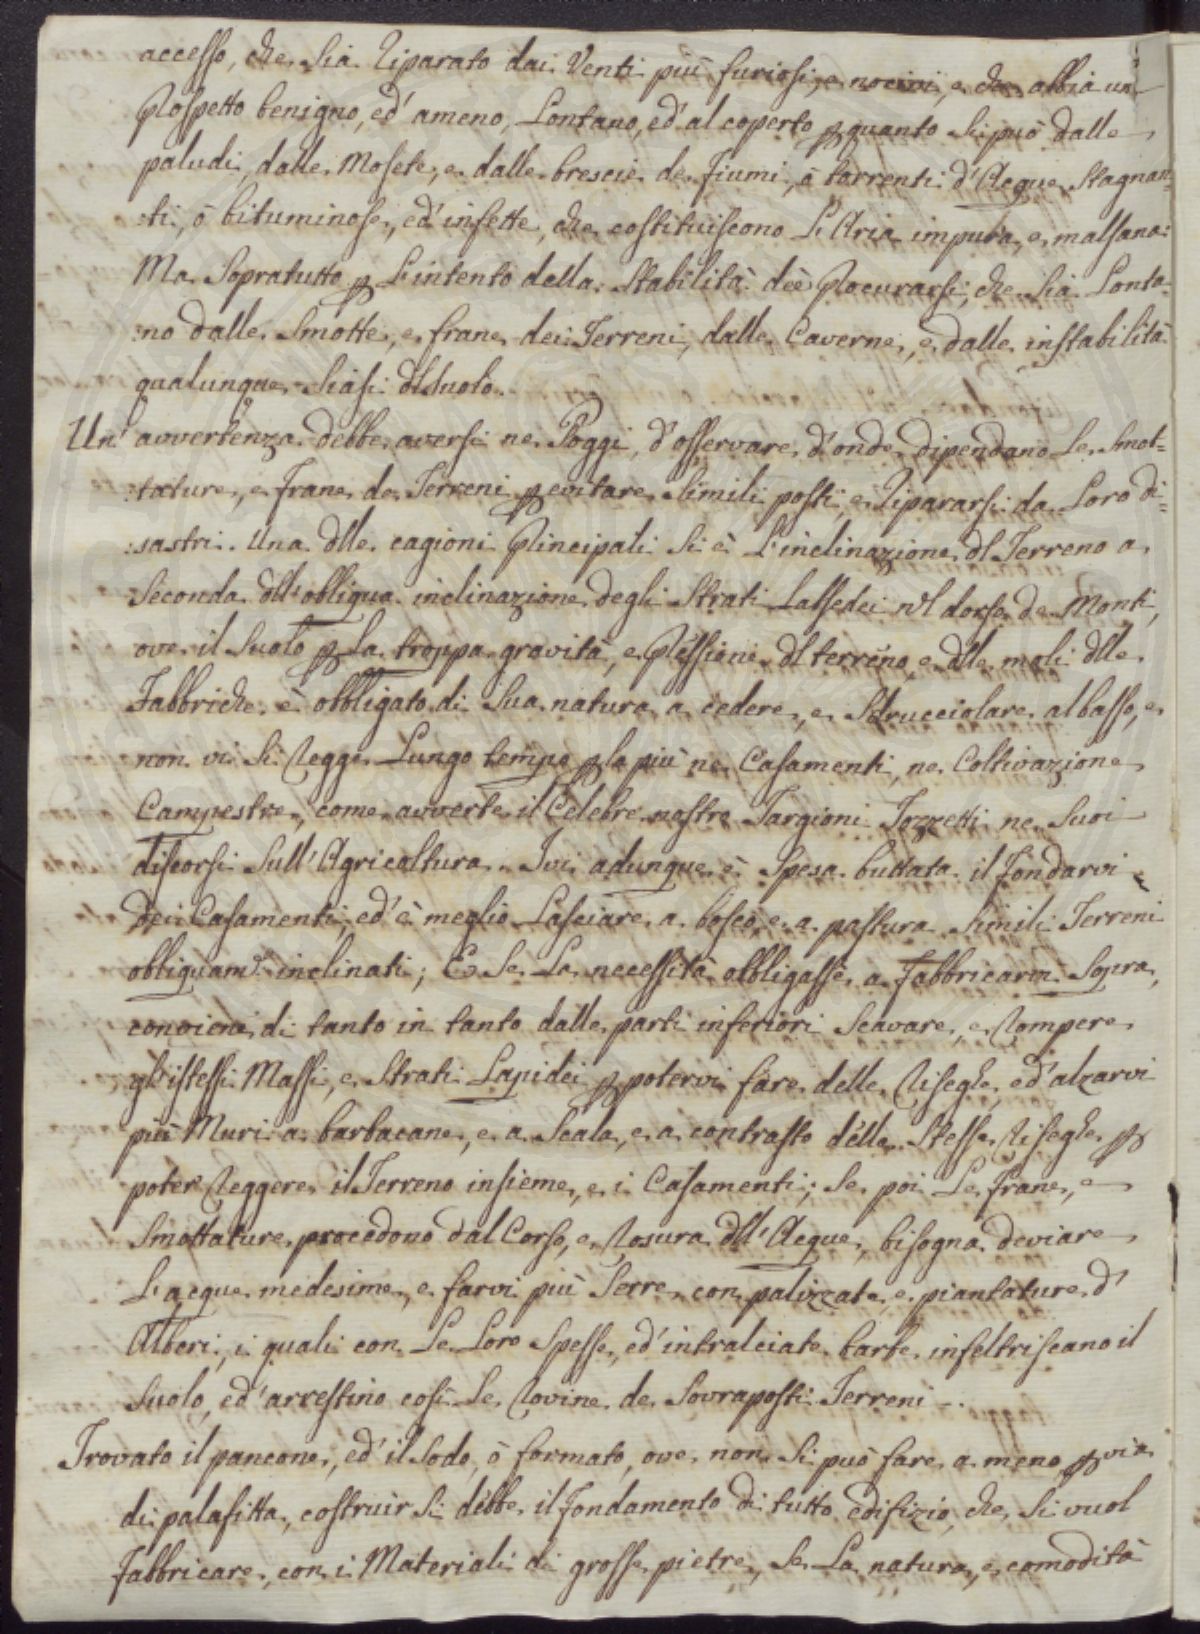 accesso, che sia riparato dai Venti più furiosi, e nocivi, e che abbia un
Prospetto benigno, ed' ameno, Lontano, ed' al coperto p quanto si può dalle
paludi, dalle Mofete, e dalle brescie de Fiumi, ò torrenti d'Acque Stagnan=
:ti, ò bituminose, ed' infette, che costituiscono L'Aria impura, e malsana:
Ma Sopratutto p L'intento della Stabilità deè Procurarsi, che sia Lonta=
:no dalle Smotte, e frane dei Terreni, dalle Caverne, e dalle instabilità
qualunque siasi dl Suolo.
Un' avvertenza debbe aversi ne Poggi, d'osservare, d'onde dipendano Le Smot=
:tature, e Frane de Terreni p evitare simili posti, e ripararsi da Loro di=
:sastri. Una dlle cagioni Principali si è L'inclinazione dl Terreno a
Seconda dll'obliqua inclinazione degli Strati Lassedei nl dorso de Monti,
ove il Suolo p La troppa gravità, e Pressione dl terreno, e dlle moli dlle
Fabbriche è obbligato di Sua natura a cedere, e Sdrucciolare al basso, e
non vi si regge Lungo tempo p lo più ne Casamenti, ne Coltivazione
Campestre, come avverte il Celebre nostro Targioni Tozzetti ne Suoi
discorsi Sull'Agricoltura. Ivi adunque è Spesa buttata il Fondarvi
dei Casamenti, ed' è meglio Lasciare a bosco, e a pastura simili Terreni
obliquamte inclinati; E Se La necessità obbligasse a Fabbricarvi Sopra,
conviene di tanto in tanto dalle parti inferiori Scavare, e rompere
gl'istessi Massi, e Strati Lapidei p potervi fare delle riseghe, ed' alzarvi
più Muri a barbacane, e a Scala, e a contrasto délle Stesse riseghe p
poter reggere il Terreno insieme, e i Casamenti; Se poi Le Frane, e
Smottature procedono dal Corso, e rosura dll'Acque, bisogna deviare
L'acque medesime, e farvi più Serre con palizzate, e piantature d'
Alberi, i quali con Le Loro Spesse, ed' intralciate barbe infeltriscano il
Suolo, ed' arrestino così Le rovine de Sovraposti Terreni.
Trovato il pancone, ed' il Sodo, ò formato, ove non si può fare a meno p via
di palafitta, costruir si débbe il Fondamento di tutto edifizio, che si vuol
Fabbricare, con i Materiali di grosse pietre, Se La natura, e comodità